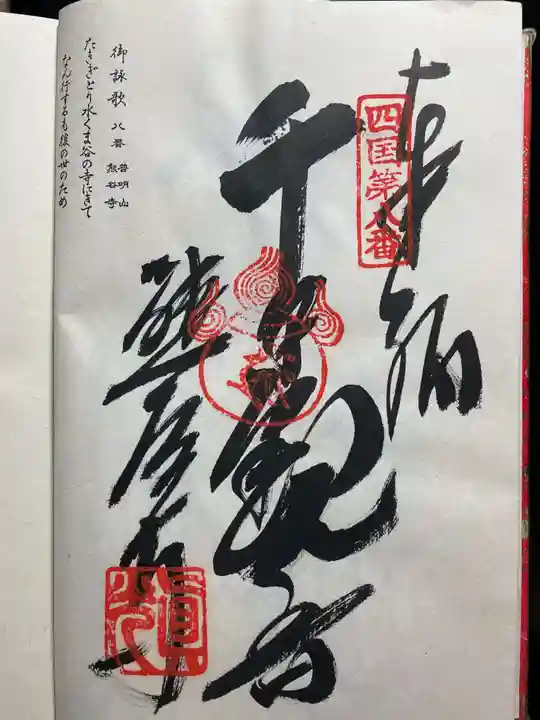 奉納
四国第八番
千手観音
熊谷寺
御詠歌 八番 普明山 熊谷寺
たきぎとり水くま谷の寺にきて
なん行するも後の世のため